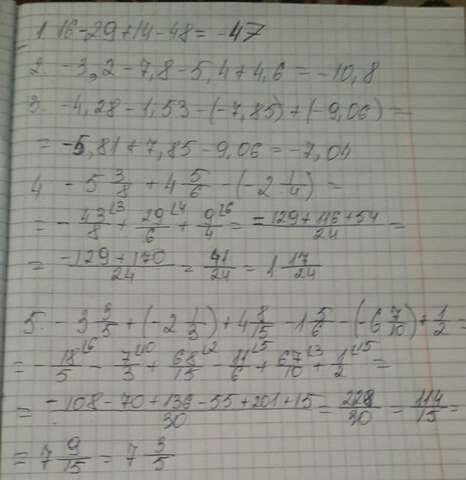 1 16-29+14-48= -47
2. -3,2-7,8-5,4+4,6=-10,8
3. -4,28-1,53-(-7,85)+(-9,06)=
= -5,81+7,85-9,06=-7,04
4 -5 3/8 + 4 5/6 - (-2 1/4) =
= - 43/8 ⌊3 + 29/6 ⌊4 + 9/4 ⌊6 = -129+116+54/24 =
= -129+170/24 = 41/24 = 1 17/24
5. -3 3/5 + (-2 1/3) + 4 8/15 - 1 5/6 - (-6 7/10) + 1/2 =
= - 18/5 ⌊6 - 7/3 ⌊10 + 68/15 ⌊2 - 11/6 ⌊5 + 67/10 ⌊3 + 1/2 ⌊15 =
= -108-70+136-55+201+15/30 = 228/30 = 114/15 =
= 7 9/15 = 7 3/5